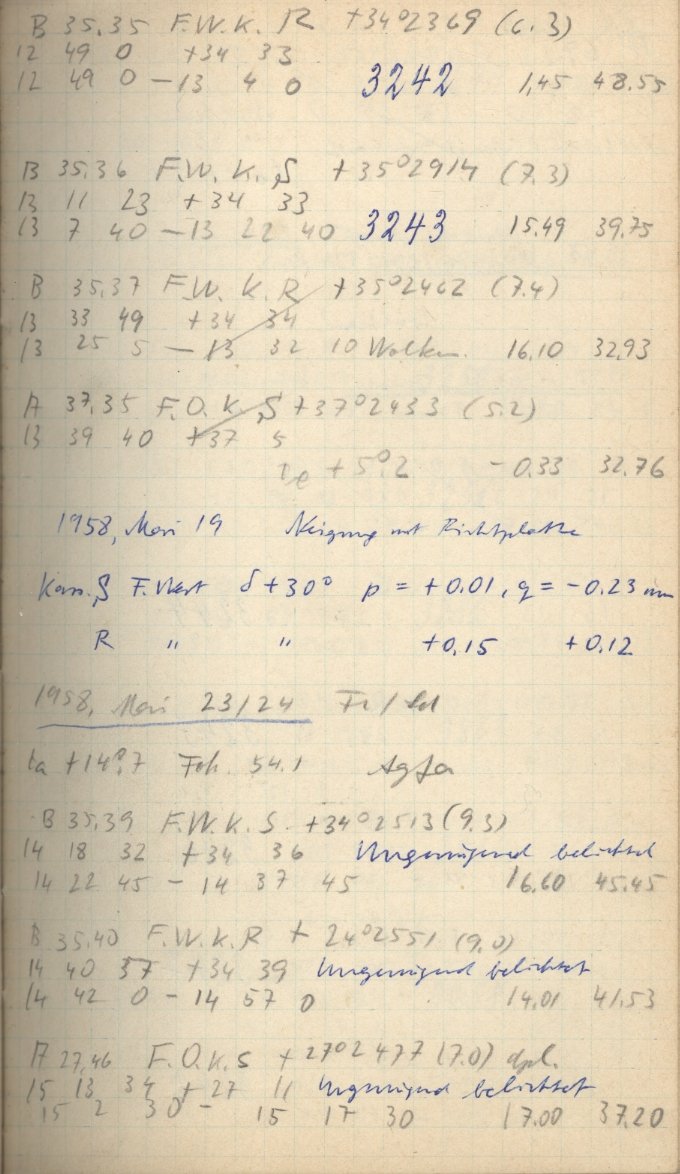 B 35.35 F.W.K. R +34°2369 (6.3)
12 49 0 +34 33
12 49 0 – 13 4 0 3242 1,45 48.55
B 35.36 F.W.K. S +35°2914 (7.3)
13 11 23 +34 33
13 7 40 – 13 22 40 3243 15.49 39.75
B 35.37 F.W. K. R +35°2462 (7.4)
13 33 49 +34 34
13 25 5 – 13 32 10 Wolken 16.10 32.93
A 37.35 F.O.K. S +37°2433 (5.2)
13 39 40 +37 5
te +5°.2 -0.33 32.76
1958, Mai 19 Neigung mit Richtplatte
Kass. S F. West δ +30° p = +0.01, q = -0.23 mm
R " " +0.15 +0.12
1958, Mai 23/24
ta +14°.7 Fok. 54.1 Agfa
B 35.39 F.W.K. S. +34°2513 (9.3)
14 18 32 +34 36 Ungenügend belichtet
14 22 45 – 14 37 45 16.60 45.45
B 35.40 F.W.K.R + 24°2551 (9.0)
14 40 37 +34 39 Ungenügend belichtet
14 42 0 – 14 57 0 14.01 41.53
A 27.46 F.O.K.S +27°2477 (7.0) dpl.
15 13 34 + 27 11 Ungenügend belichtet
15 2 30 – 15 17 30 17.00 37.20